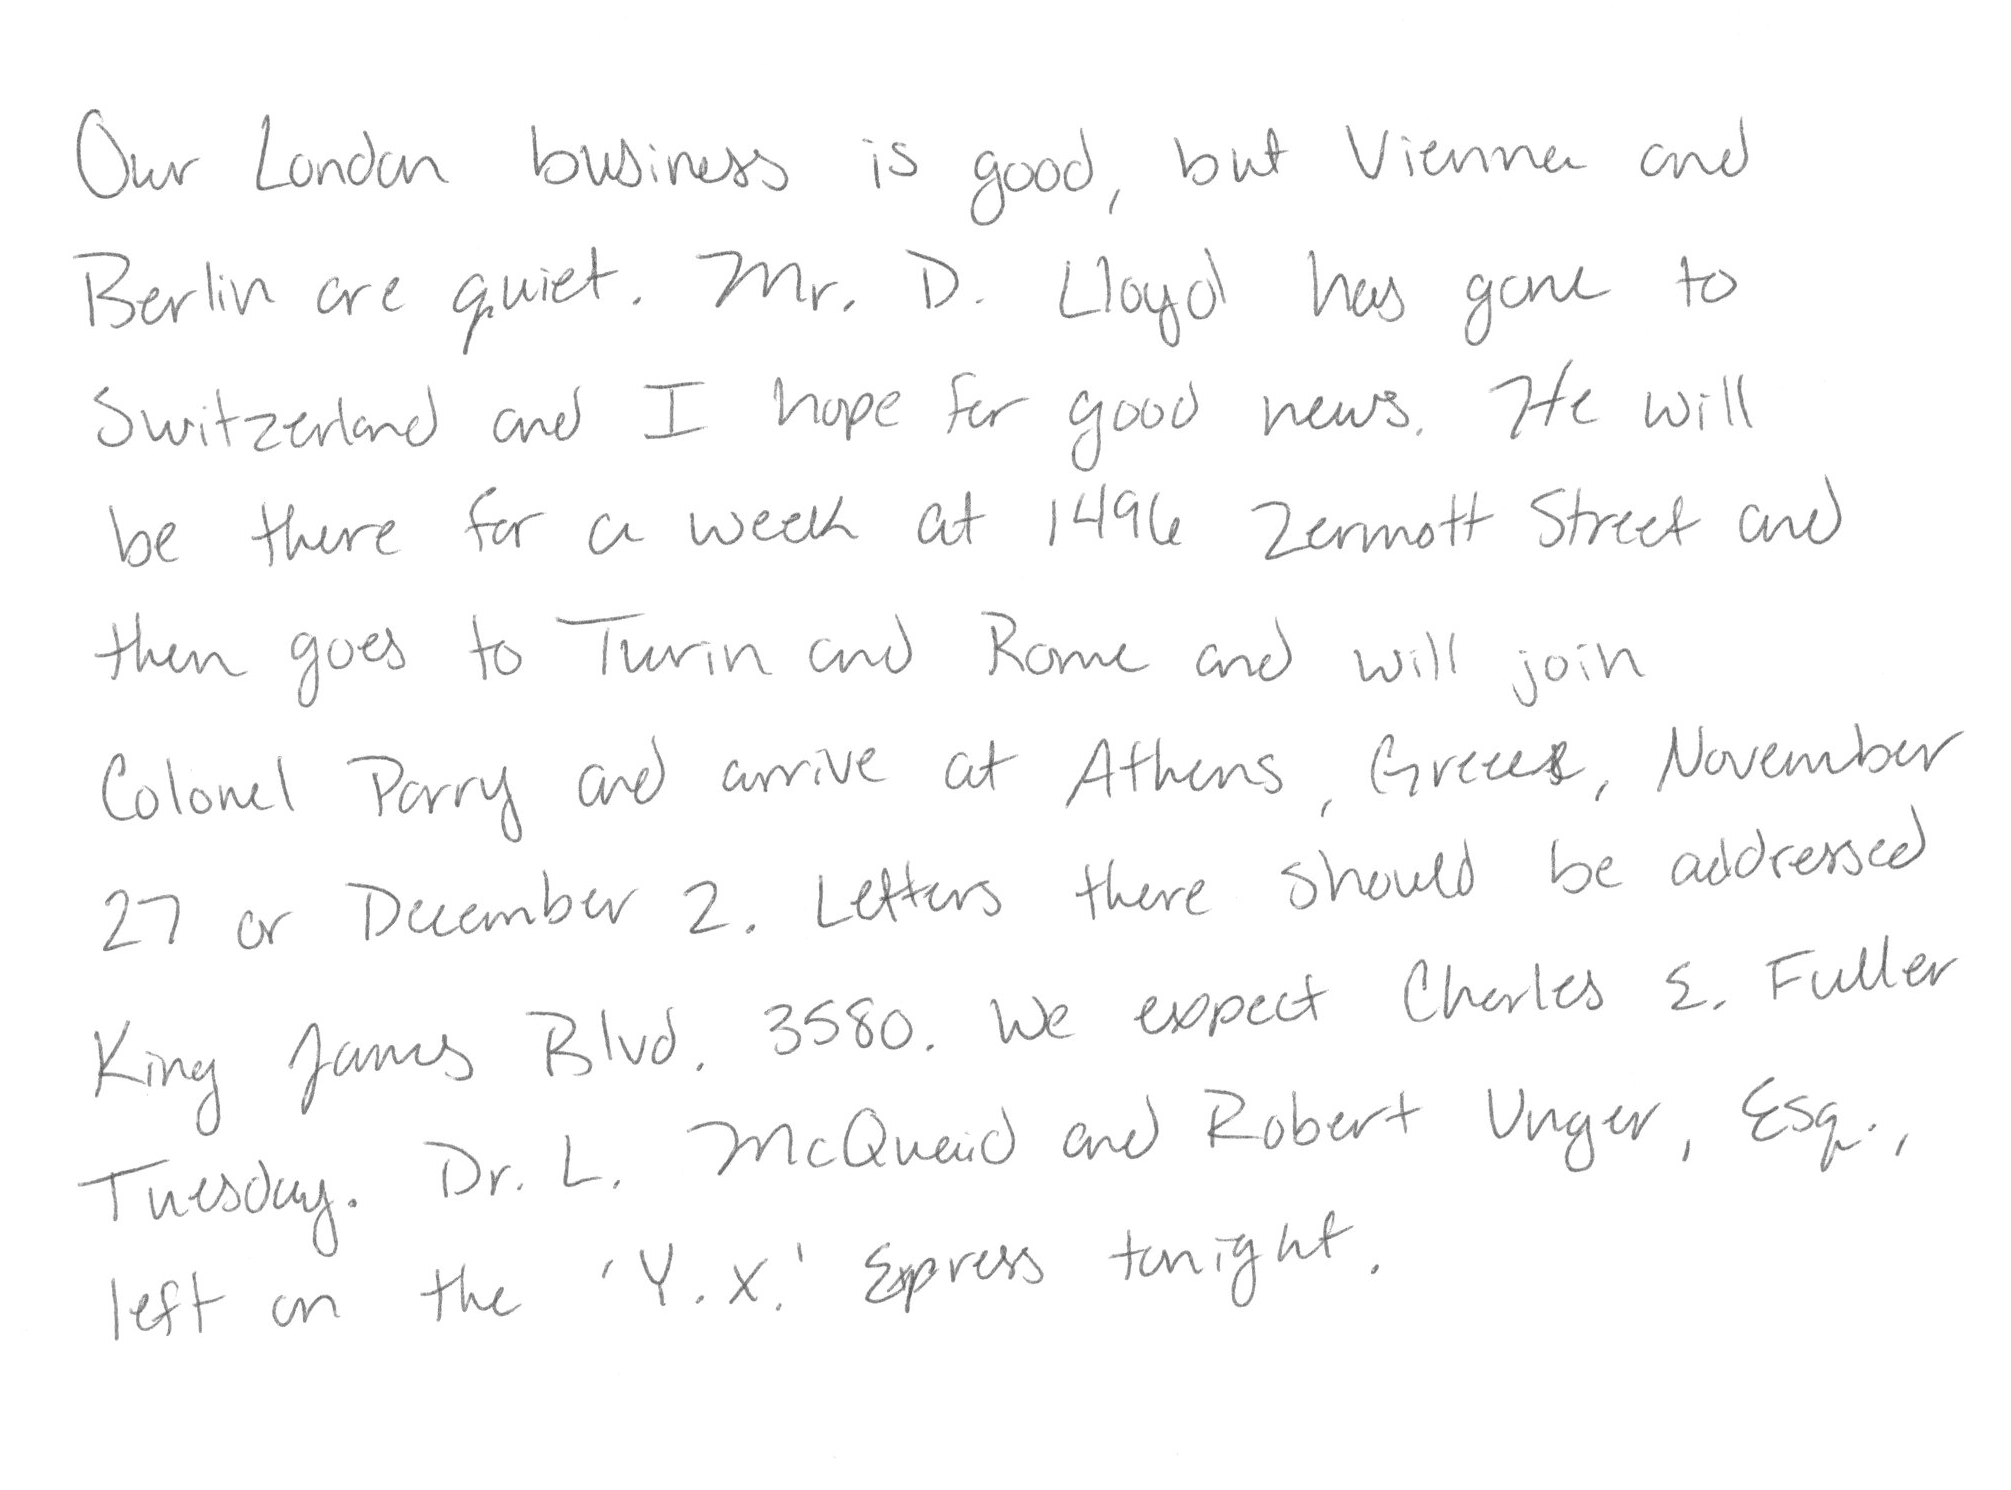 Our London business is good, but Vienna and
Berlin are quiet. Mr. D. Lloyd has gone to
Switzerland and I hope for good news. He will
be there for a week at 1496 Zermott Street and
then goes to Turin and Rome and will join
Colonel Parry and arrive at Athens, Greece, November
27 or December 2. Letters there should be addressed
King James Blvd. 3580. We expect Charles E. Fuller
Tuesday. Dr. L. McQuaid and Robert Unger, Esq.,
left on the 'Y.X.' Express tonight.